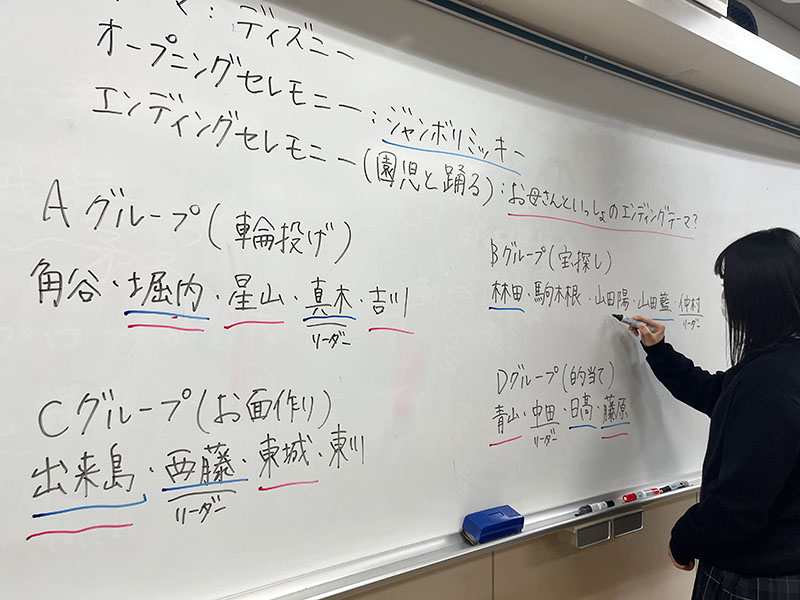 マ：ディズニー
オープニングセレモニー：ジャンボリミッキー
エンディングセレモニー(園児と踊る)：お母さんといっしょのエンディングテーマ？
Aグループ(輪投げ)
角谷・堀内・星山・真木・吉川
リーダー
Bグループ(宝探し)
林田・駒木根・山田陽・山田藍・仲村
リーダー
Cグループ(お面作り)
出来島・西藤・東城・東川
リーダー
Dグループ(的当て)
青山・中田・日髙・藤原
リーダー